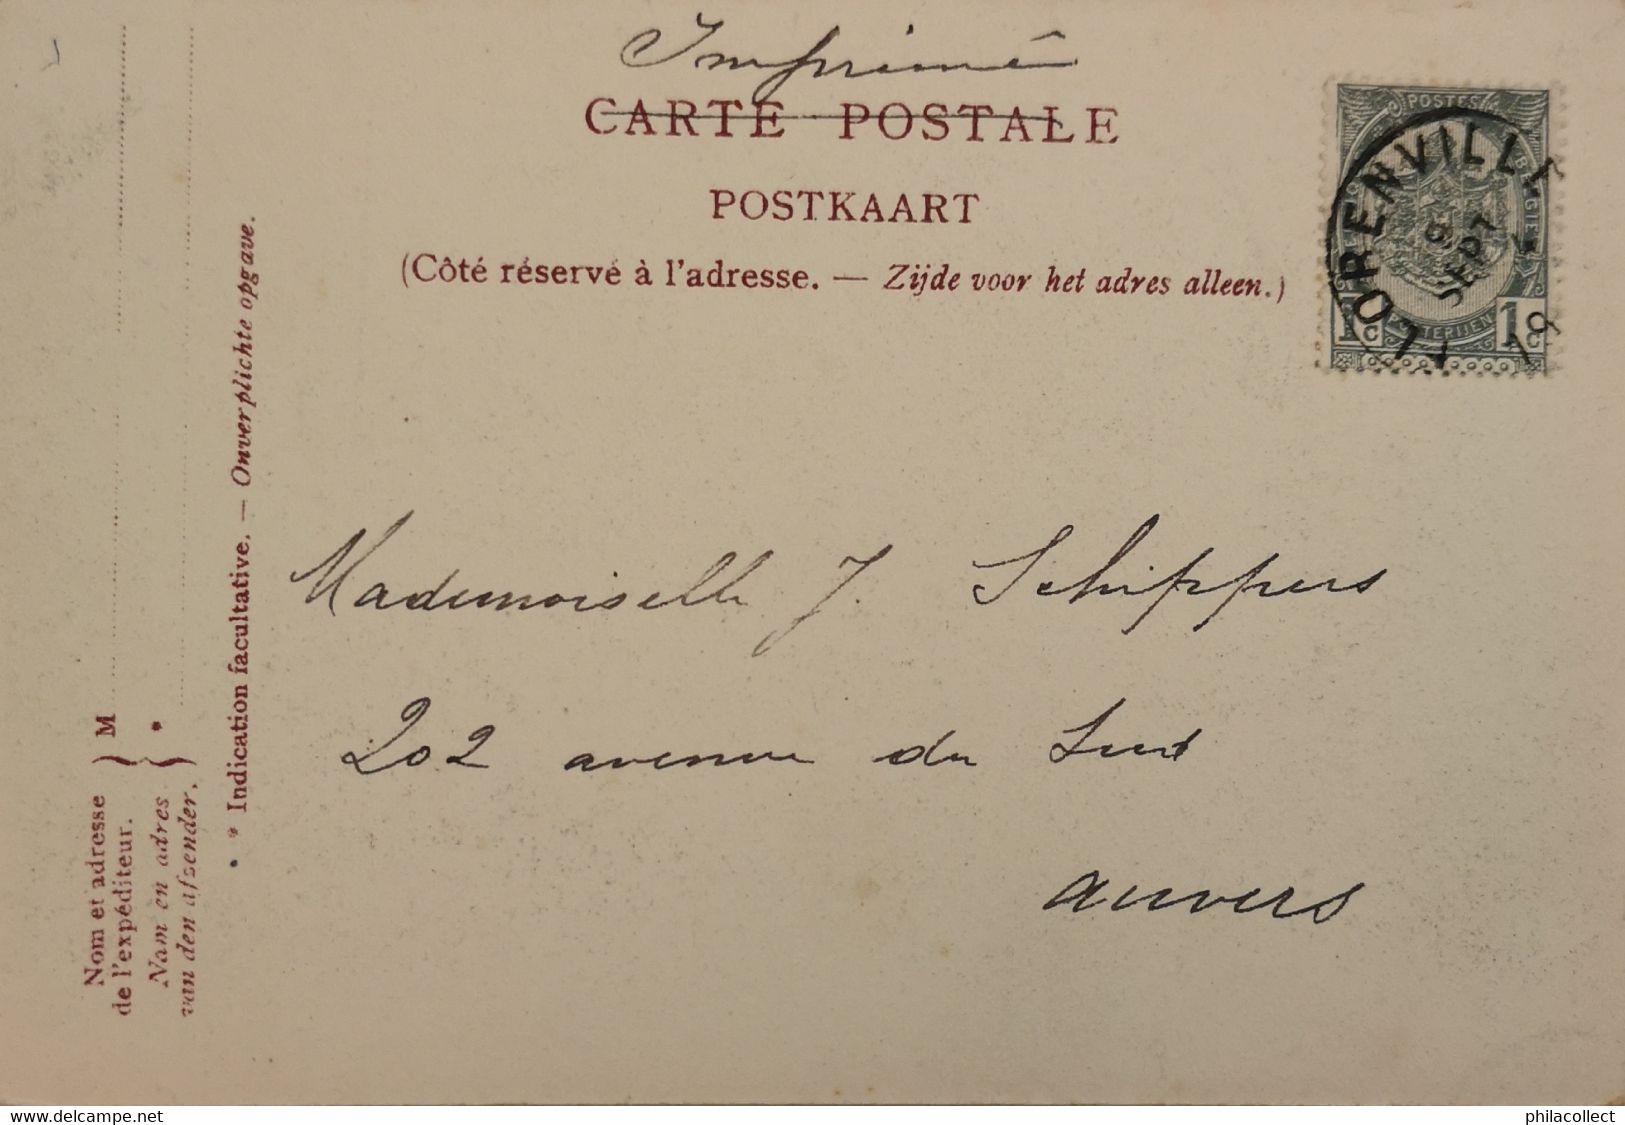 Imprimé
CARTE POSTALE
POSTKAART
(Côté réservé à l'adresse. — Zijde voor het adres alleen.)
POSTES
BELGIQUE
BELGIË
POSTERIJEN
1c
1c
FLORENVILLE
SEPT
Mademoiselle J. Schippers
202 avenue du Sud
anvers
Nom et adresse
de l'expéditeur.
} M
Nam en adres
van den afzender.
} *
* Indication facultative. — Onverplichte opgave.
www.delcampe.net
philacollect